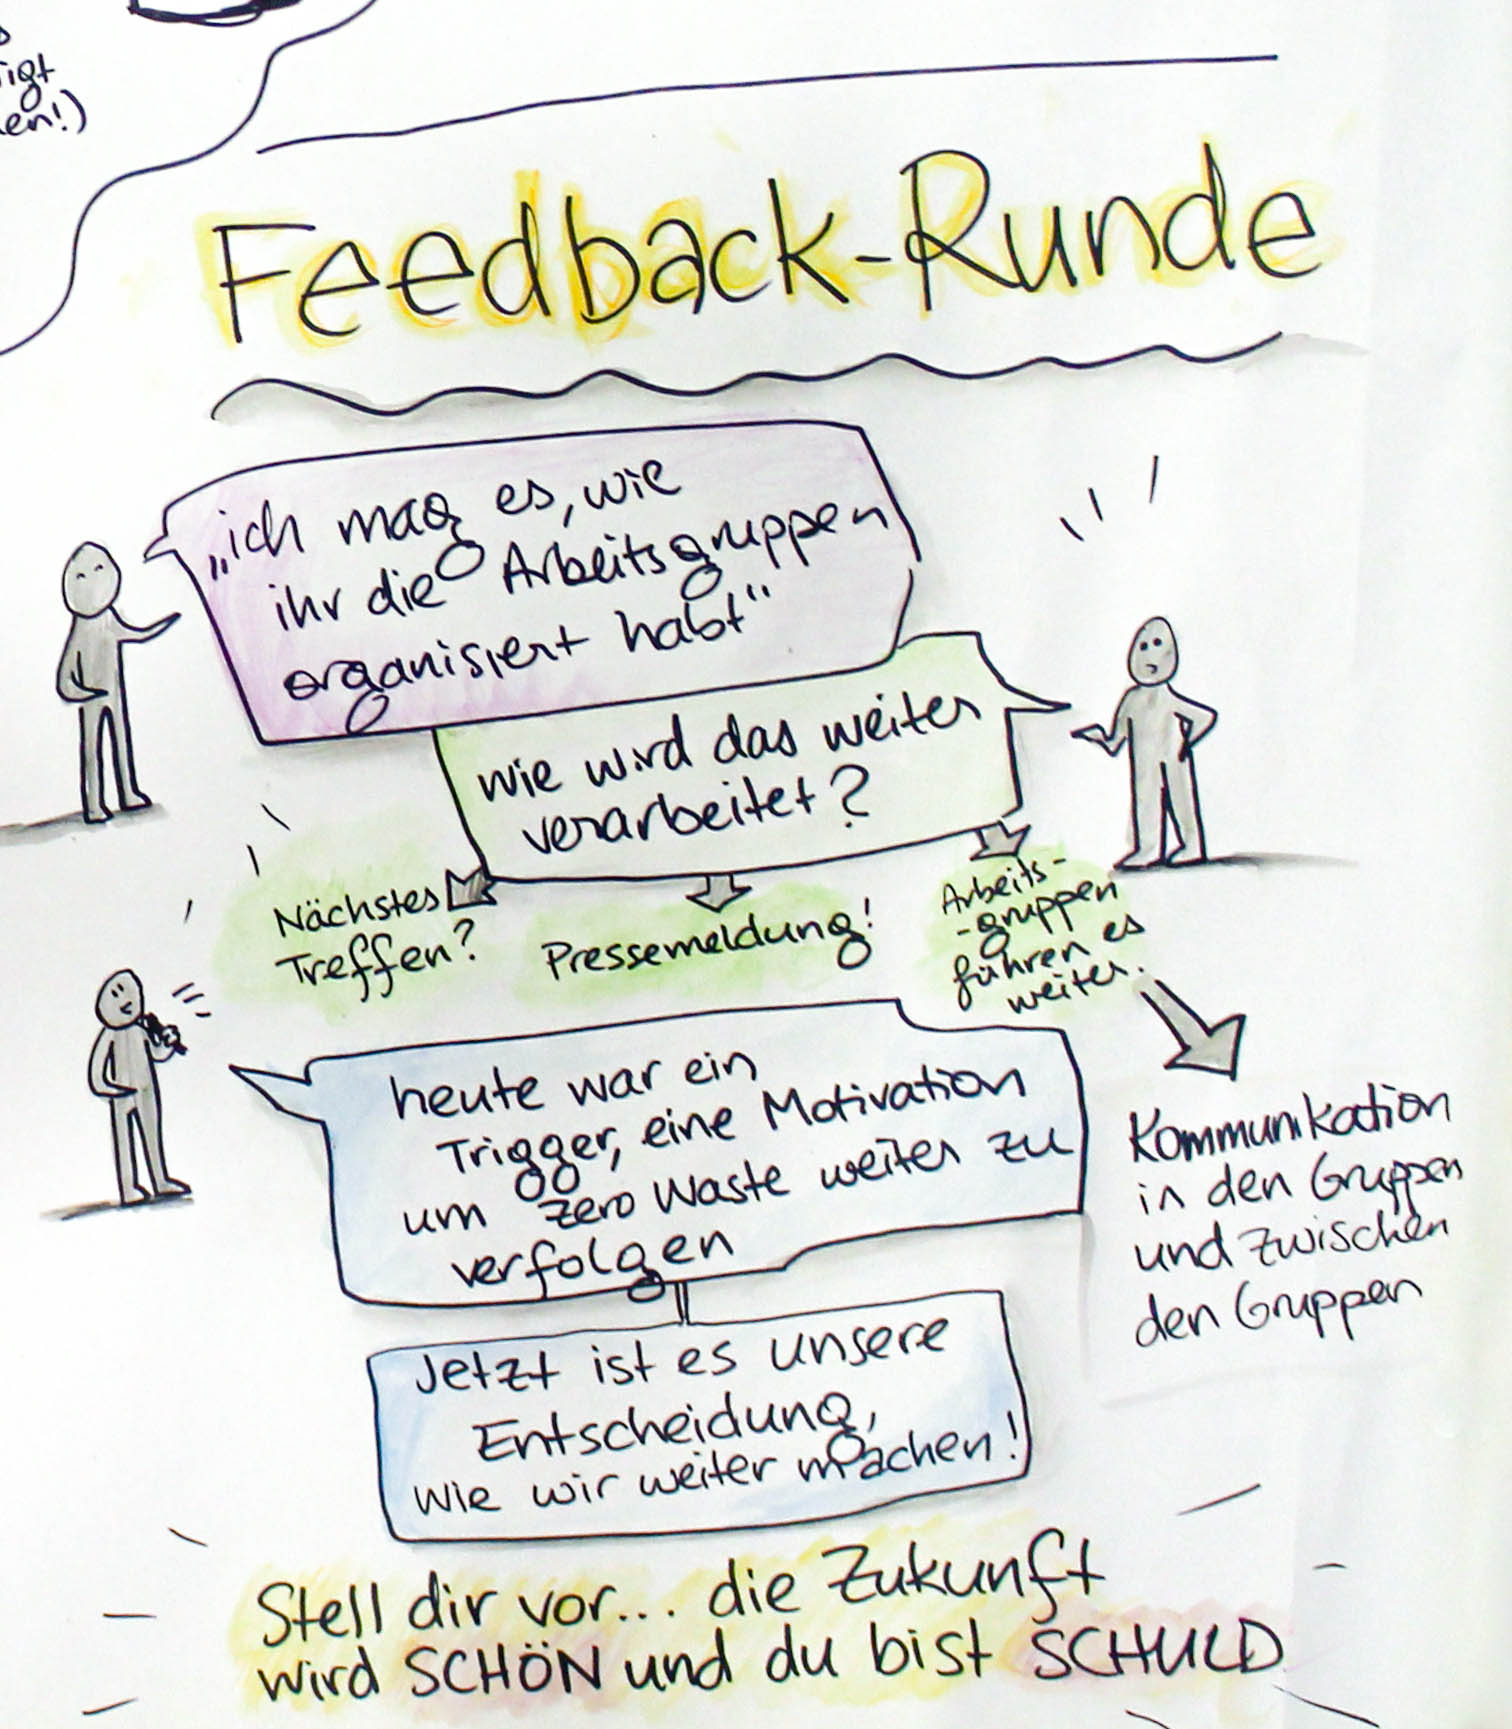 en!)
Feedback-Runde
„ich mag es, wie
ihr die Arbeitsgruppen
organisiert habt“
wie wird das weiter
verarbeitet?
Nächstes
Treffen?
Pressemeldung!
Arbeits-
-gruppen
führen es
weiter.
Kommunikation
in den Gruppen
und zwischen
den Gruppen
heute war ein
Trigger, eine Motivation
um Zero Waste weiter zu
verfolgen
Jetzt ist es unsere
Entscheidung,
wie wir weiter machen!
Stell dir vor... die Zukunft
wird SCHÖN und du bist SCHULD